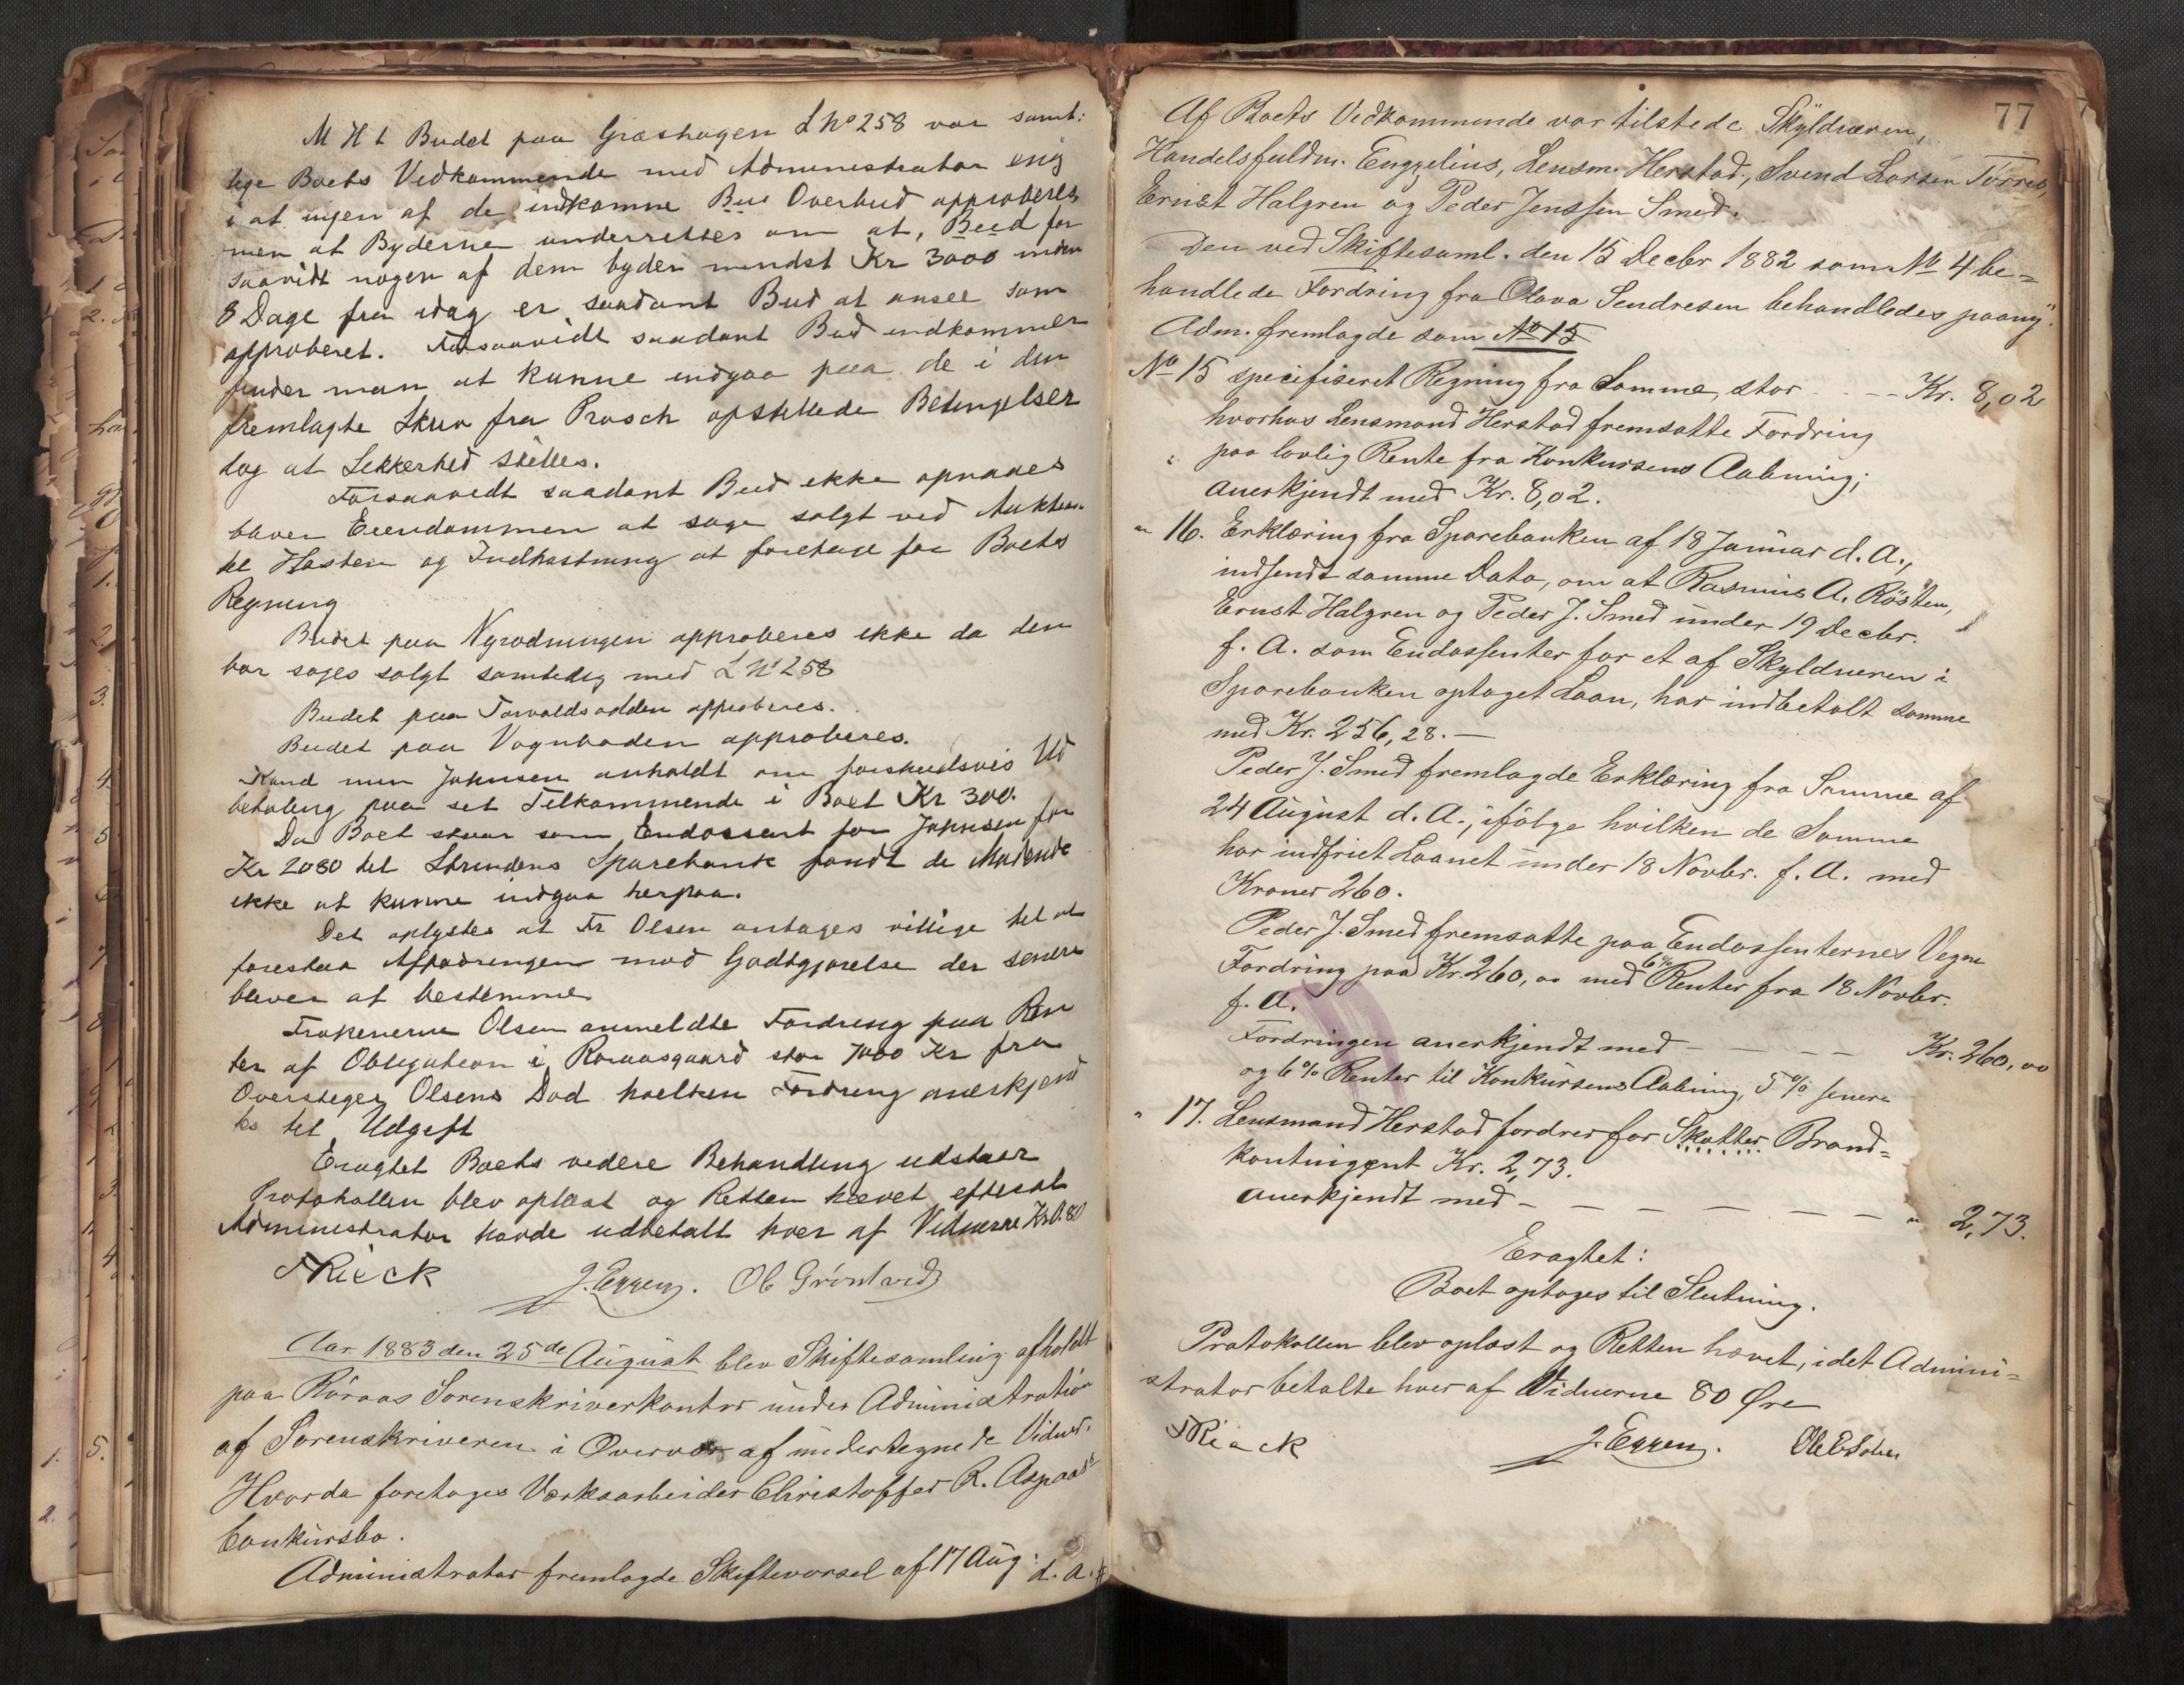 M H t Budet paa Græshagen L No 258 var samt:
lige Boets Vedkommende med Administrator enig
i at ingen af de indkomne Overbud approberes
men at Byderne underrettes om at, Bud for
saavidt nogen af dem byder mindst Kr 3000 inden
8 Dage fra idag er saadant Bud at ansee som
approberet. Forsaavidt saadant Bud indkommer
finder man at kunne indgaa paa de i den
fremlagte Skriv fra Prosch opstillede Betingelser
dog at Sekkerhed stilles.
Forsaavidt saadant Bud ikke opnaaes
bliver Eiendommen at søge solgt ved Auktion
til Høsten og Indhøstning at foretage for Boets
Regning
Budet paa Nyrødningen approberes ikke da den
bør søges solgt samtidig med L No 258
Budet paa Torvaldsodden approberes.
Budet paa Vognboden approberes.
Kand min Johnsen anholdt om forskudsvis Ud
betaling paa set Tilkommende i Boet Kr 300.
Da Boet staar som Endossent for Johnsen for
Kr 2080 til Strindens Sparebank fandt de Mødende
ikke at kunne indgaa herpaa.
Det oplystes at Fr Olsen antages villige til at
forestaa Affodringen mod Godtgjørelse der senere
bliver at bestemme
Frøkenerne Olsen anmeldte Fordring paa Ren
ter af Obligation i Raaasgaard stor 7000 Kr fra
Oversteger Olsens Død hvilken Fordring anerkjend
tes til Udgift
Eragtet Boets videre Behandling udstaar
Protokollen blev oplæst og Retten hævet efterat
Administrator havde udbetalt hver af Vidnerne Kr 0.80
F Rieck J. Eggen. Ol Gröntvedt
Aar 1883 den 25de August blev Skiftesamling afholdt
paa Röraas Sorenskriverkontor under Administration
af Sorenskriveren i Overvær af undertegnede Vidner.
Hvorda foretoges Værksarbeider Christoffer R. Aspaas's
Conkursbo.
Administrator fremlagde Skiftevarsel af 17 Aug: d. A.
77
Af Boets Vedkommende var tilstede Skyldneren,
Handelsfuldm. Engzelius, Lensm. Herstad, Svend Larsen Torres,
Ernst Halgren og Peder Jenssen Smed.
Den ved Skiftesaml. den 15 Decbr 1882 som No 4 be=
handlede Fordring fra Olava Sendresen behandledes paany.
Adm. fremlagde som No 15
No 15 specifiseret Regning fra Samme, stor - - - - Kr. 8,02
hvorhos Lensmand Herstad fremsatte Fordring
paa lovlig Rente fra Konkursens Aabning;
anerkjendt med Kr. 8,02.
" 16. Erklæring fra Sparebanken af 18 Januar d. A.,
indsendt samme Dato, om at Rasmus A. Rösten,
Ernst Halgren og Peder J. Smed under 19 Decbr.
f. A. som Endossenter for et af Skyldneren i
Sparebanken optaget Laan, har indbetalt samme
med Kr. 256,28. —
Peder J. Smed fremlagde Erklæring fra Samme af
24 August d. A., ifölge hvilken de Samme
har indfriet Laanet under 18 Novbr. f. A. med
Kroner 260.
Peder J. Smed fremsatte paa Endossenternes Vegne
Fordring paa Kr. 260,00 med 6% Renter fra 18 Novbr.
f. A.
Fordringen anerkjendt med - - - - Kr. 260,00
og 6% Renter til Konkursens Aabning, 5% senere
" 17. Lensmand Herstad fordrer for Skatter Brand=
kontingent Kr. 2,73.
anerkjendt med - - - - - - - " 2,73.
Eragtet:
Boet optages til Slutning.
Protokollen blev oplæst og Retten hævet, idet Admini=
strator betalte hver af Vidnerne 80 Øre
F Rieck J. Eggen.